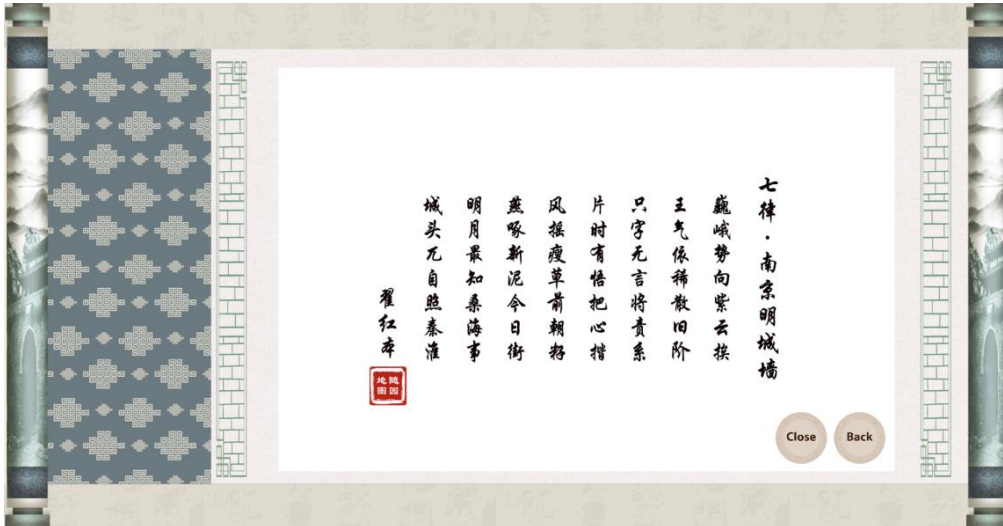 七律·南京明城墙
巍峨势向紫云挨
王气依稀散旧阶
只字无言将责系
片时有悟把心揩
风摇瘦草前朝籽
燕啄新泥今日街
明月最知桑海事
城头兀自照秦淮
翟红本
随园
地图
Close
Back